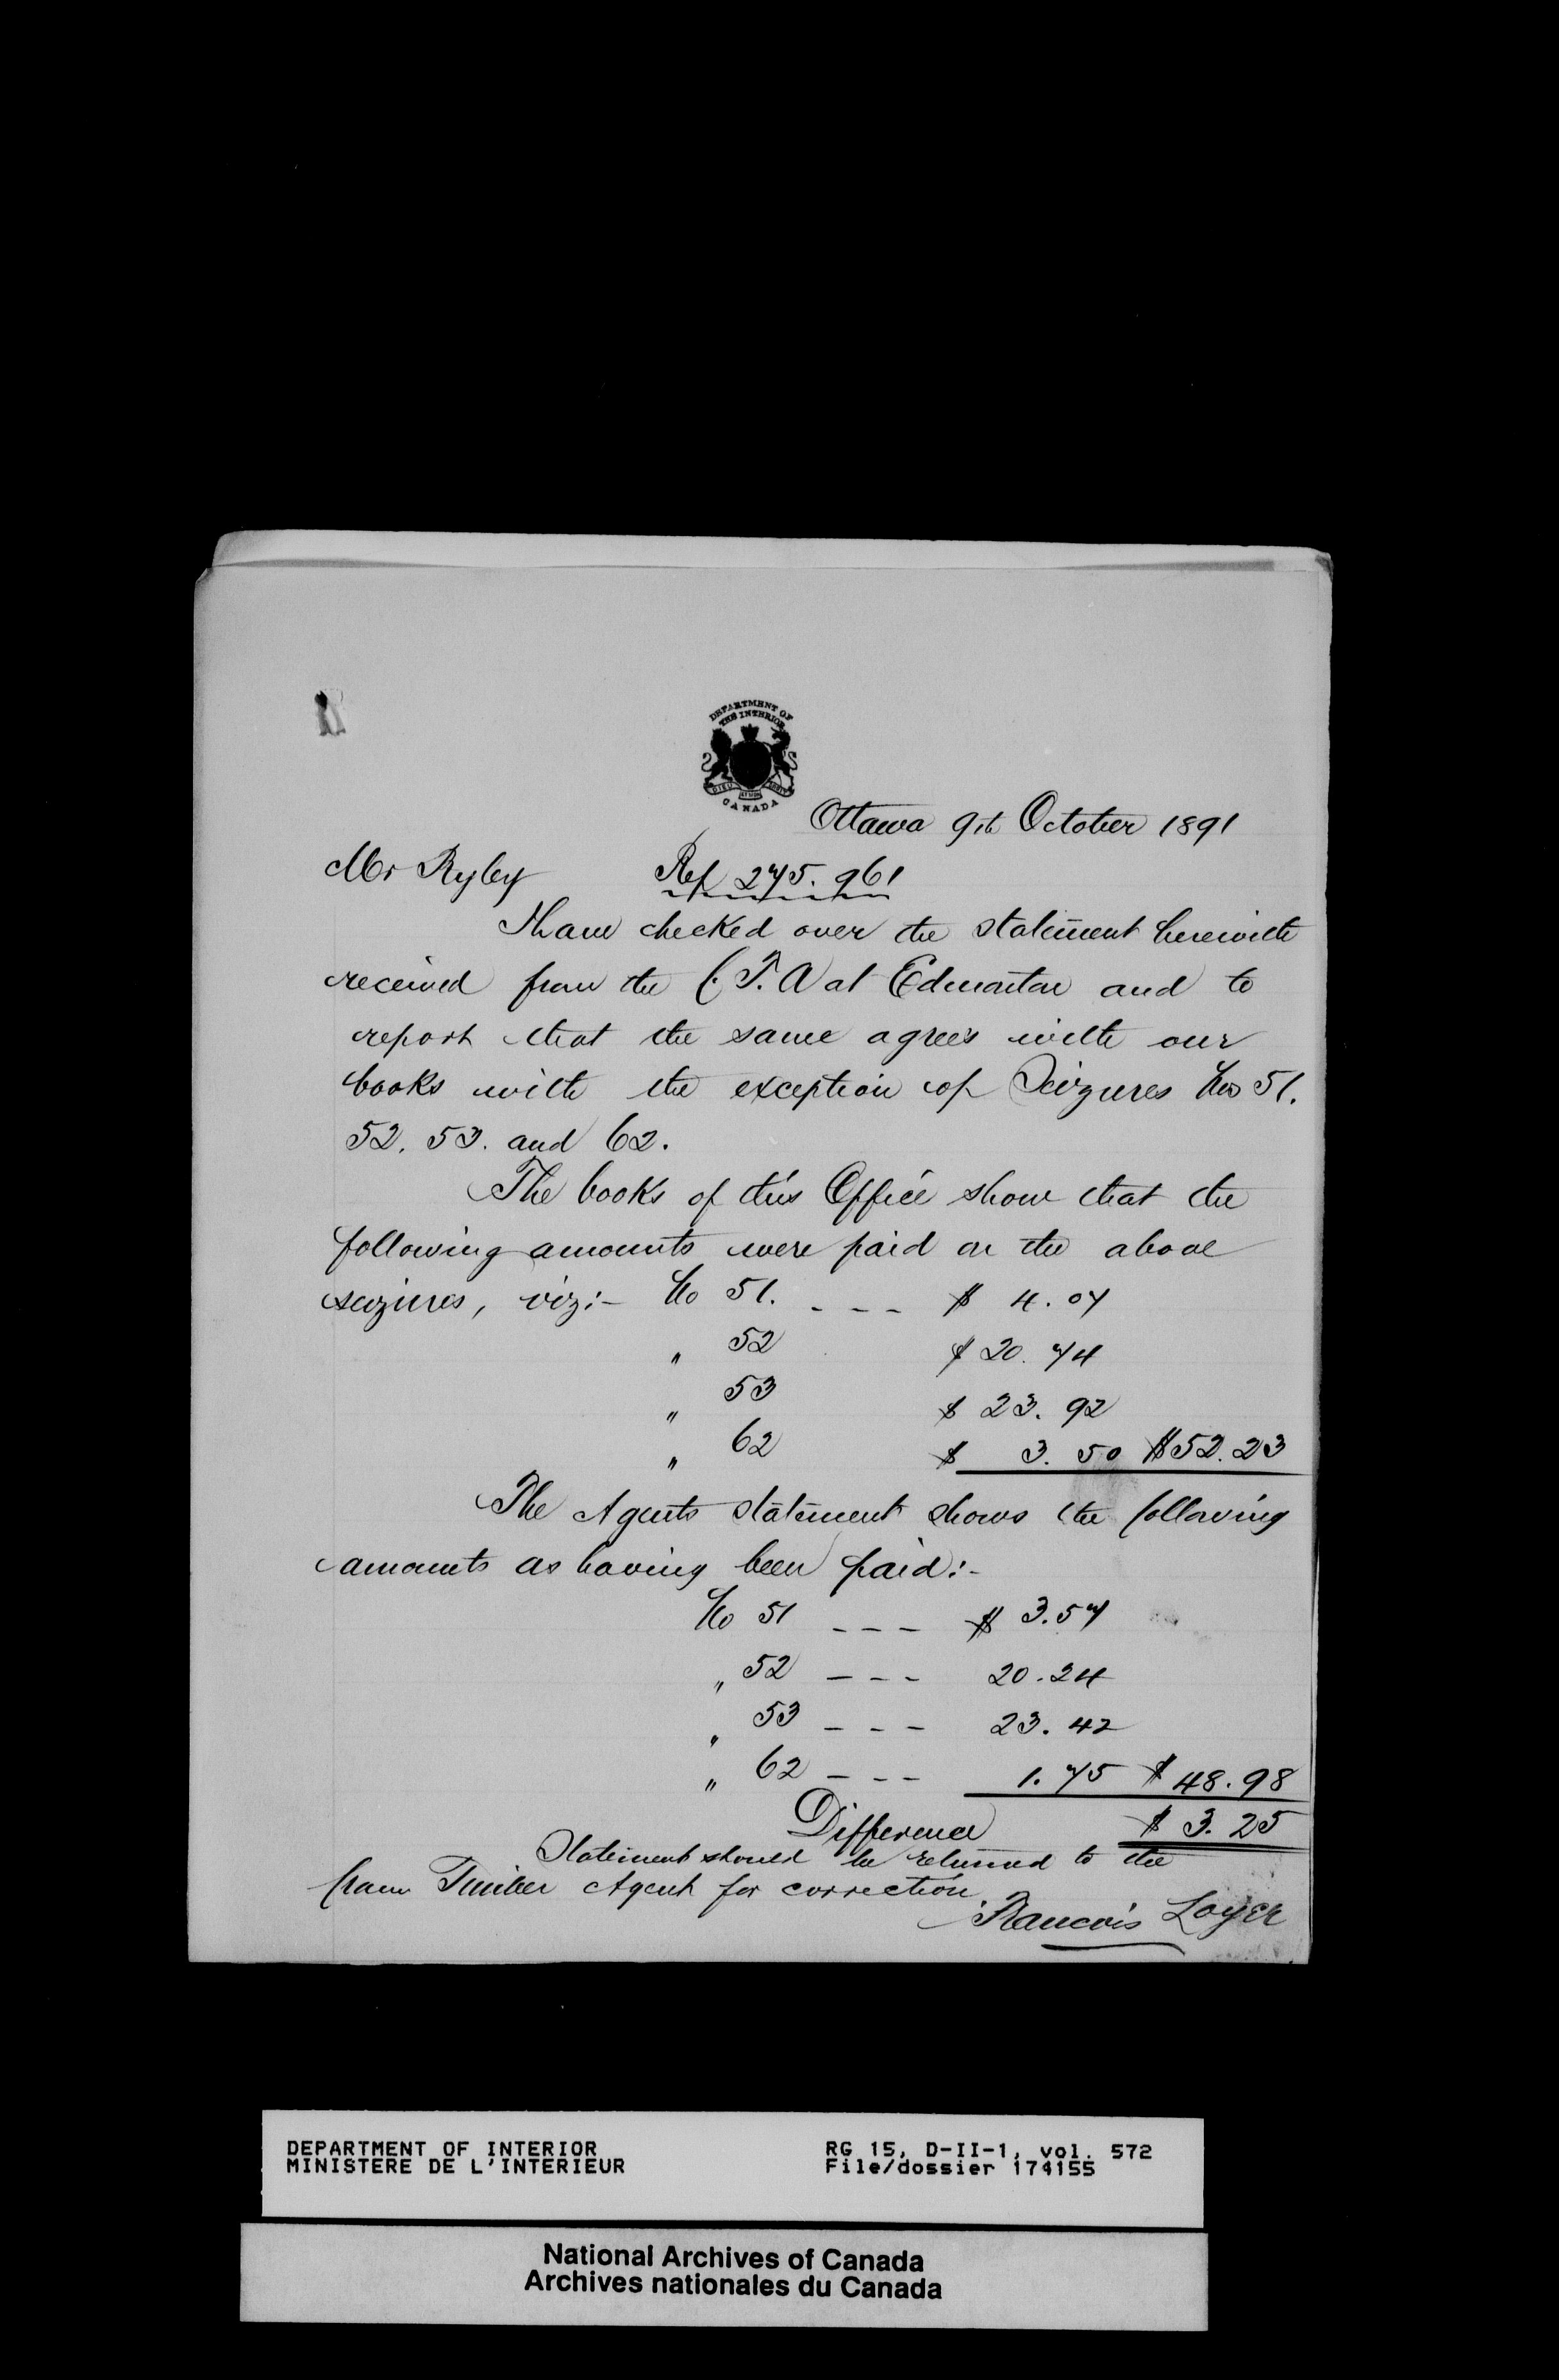 DEPARTMENT OF
THE INTERIOR
DIEU ET MON DROIT
CANADA
Ottawa 9th October 1891
Mr Ryley Ref 275.961
I have checked over the statement herewith
received from the C.T.A at Edmonton and to
report that the same agrees with our
books with the exception of Seizures Nos 51.
52. 53. and 62.
The books of this Office show that the
following amounts were paid on the above
seizures, viz:- No 51. - - - $ 4.07
" 52 $ 20.74
" 53 $ 23.92
" 62 $ 3.50 $52.23
The Agents statement shows the following
amounts as having been paid:-
No 51 - - - $ 3.57
" 52 - - - 20.24
" 53 - - - 23.42
" 62 - - - 1.75 $ 48.98
Difference $ 3.25
Statement should be returned to the
Crown Timber Agent for correction.
Francois Loyer
DEPARTMENT OF INTERIOR RG 15, D-II-1, vol. 572
MINISTERE DE L'INTERIEUR File/dossier 174155
National Archives of Canada
Archives nationales du Canada